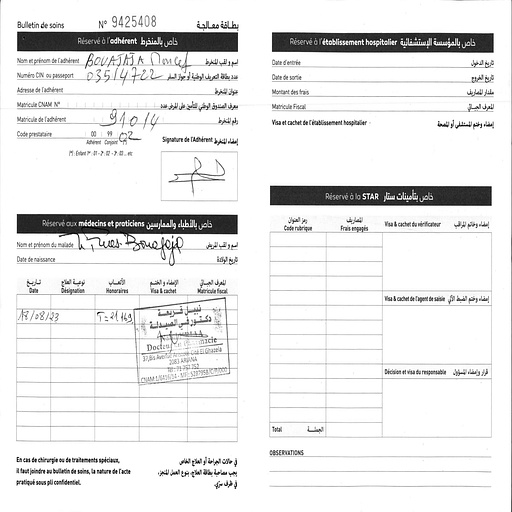 Bulletin de soins N° 9425408 بطاقة معالجة
Réservé à l'adhérent خاص بالمنخرط
Nom et prénom de l'adhérent BOUAJAJA Moncef اسم و لقب المنخرط
Numéro CIN ou passeport 03514722 عدد بطاقة التعريف الوطنية أو جواز السفر
Adresse de l'adhérent عنوان المنخرط
Matricule CNAM N° معرف الصندوق الوطني للتأمين على المرض عدد
Matricule de l'adhérent 91014 رقم المنخرط
Code prestataire 00 99 02 Signature de l'Adhérent إمضاء المنخرط
Adhérent Conjoint (*)
(*) : Enfant 1er : 01 - 2è : 02 - 3è : 03 ... etc
Réservé aux médecins et praticiens خاص بالأطباء والممارسين
Nom et prénom du malade اسم و لقب المريض
Date de naissance تاريخ الولادة
تاريخ نوعية العلاج الأتعاب الإمضاء و الختم المعرف الجبائي
Date Désignation Honoraires Visa & cachet Matricule fiscal
18/08/23 T=21.169
نبيل قريعة
دكتور في الصيدلة
Docteur en Pharmacie
37, Bis Avenue Cité El Ghazela
2083 ARIANA
En cas de chirurgie ou de traitements spéciaux,
il faut joindre au bulletin de soins, la nature de l'acte
pratiqué sous pli confidentiel.
في حالات الجراحة أو العلاج الخاص
يجب مصاحبة بطاقة العلاج، بنوع العمل المنجز،
في ظرف سري.
Réservé à l'établissement hospitalier خاص بالمؤسسة الإستشفائية
Date d'entrée تاريخ الدخول
Date de sortie تاريخ الخروج
Montant des frais مقدار المصاريف
Matricule Fiscal المعرف الجبائي
Visa et cachet de l'établissement hospitalier إمضاء وختم المستشفى أو المصحة
Réservé à la STAR خاص بتأمينات ستار
رمز العنوان المصاريف
Code rubrique Frais engagés
Visa & cachet du vérificateur إمضاء وخاتم المراقب
Visa & cachet de l'agent de saisie إمضاء وختم الضبط الآلي
Décision et visa du responsable قرار وإمضاء المسؤول
Total الجملة
OBSERVATIONS